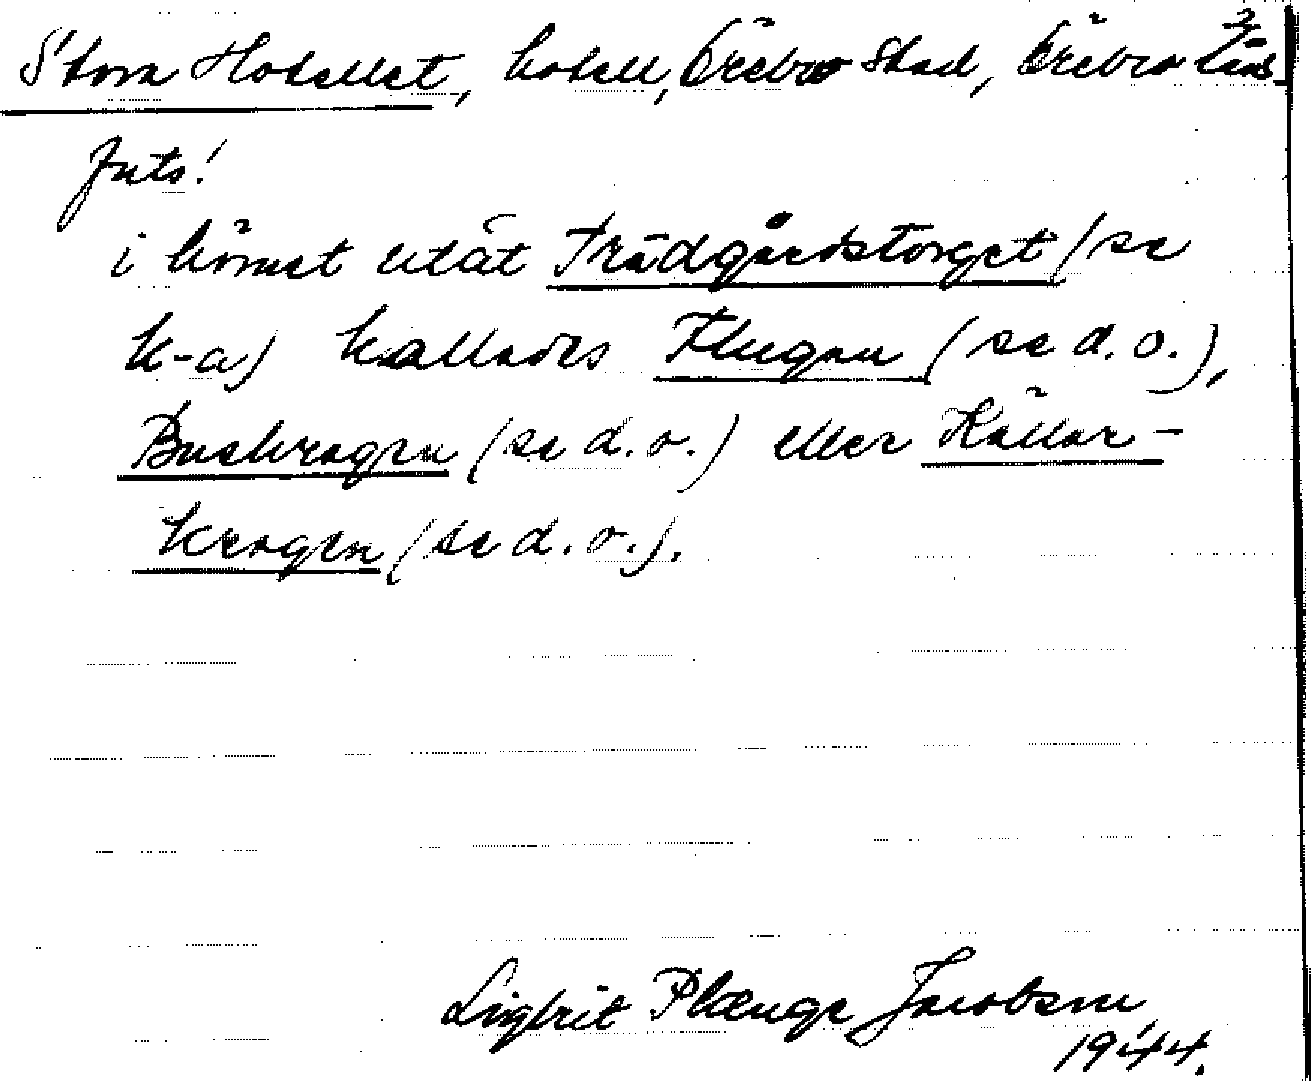 Stora Hotellet, hotell, Örebro stad, Örebro län
forts!
i hörnet utåt Trädgårdstorget (se
k-a) kallades Flugan (se d.o.),
(se d.o.) eller Källar-
krogen (se d.o.).
Plænge Jacobsen
1944.